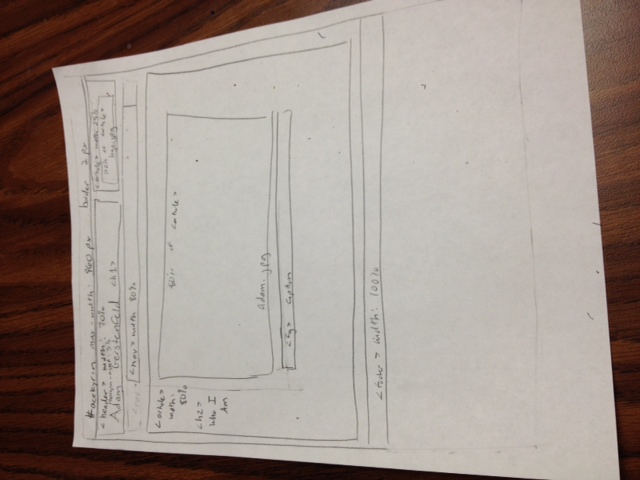 max-width: 960 px border 2 px
<header> width: 70%
Adam Gerstenfeld <h1>
<article> width 25%
logo.jpg
<nav> width 80%
<article>
width:
80%
<h2>
Who I
Am
80% of <article>
adam.jpg
<fig> caption
<footer> width: 100%